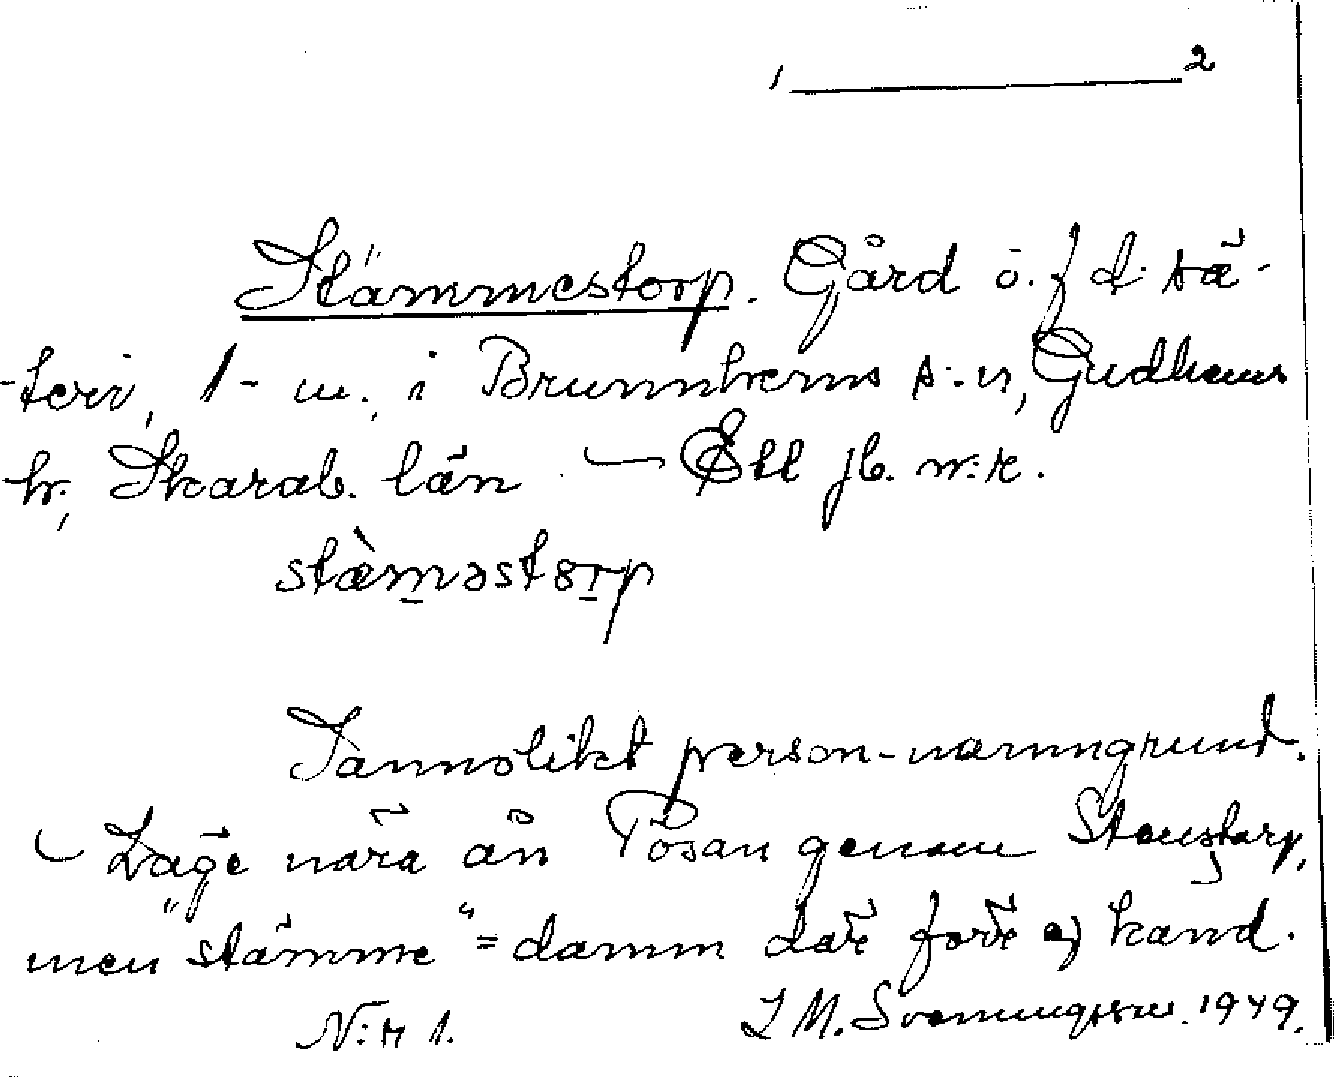 1 2
Stämmestorp. Gård o. f d. sä-
-teri, 1 - m., i Brunnhems s:n, Gudhems
hr, Skarab. län. — Ett jb. n:r.
stæ̀məstɷrp
Sannolikt person-namngrund.
— Läge nära ån Pösan genom Stenstorp,
men "stämme" = damm där förr ej känd.
N:r 1. I M. Svenungsson. 1949.